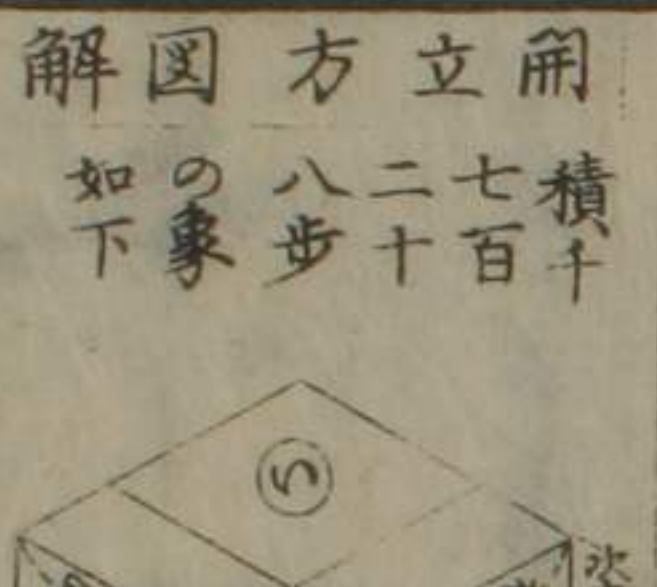 開立方図解
積千
七百
二十
八歩
の象
如下
い